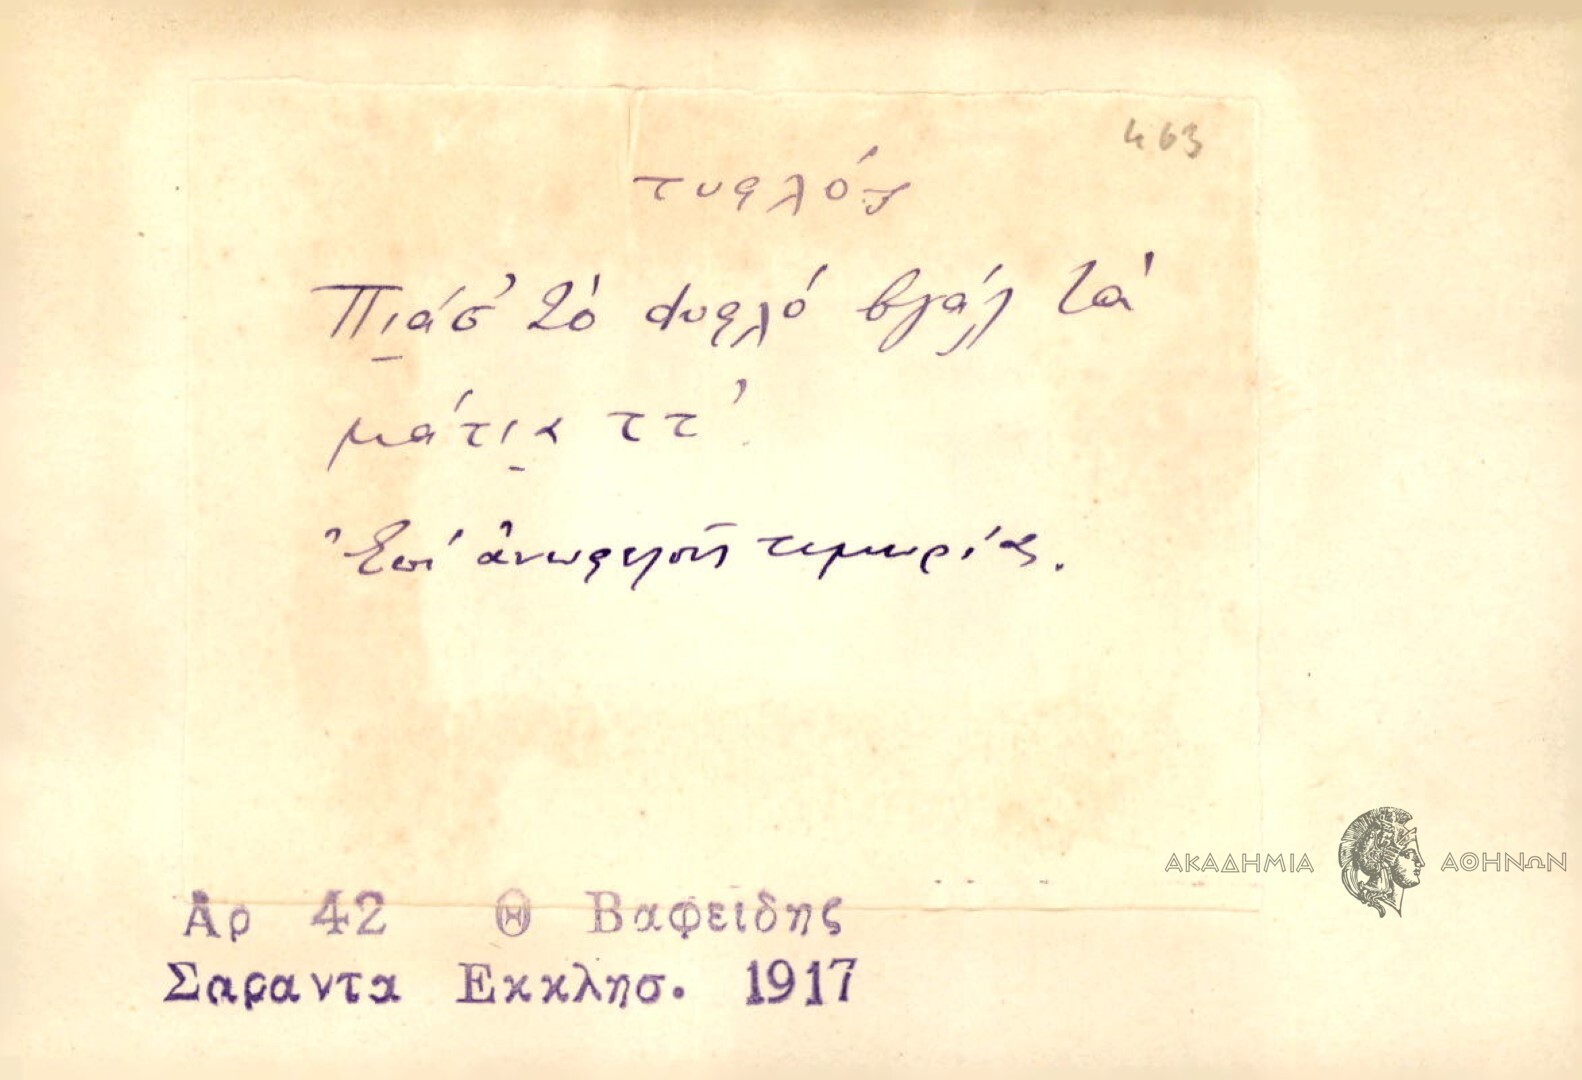 463
τυφλός
Πι̱άσ' τὸ dυφλό βγάλ τὰ
μάτι̱α ττ'.
Ἐπὶ ἀνωφελοῦς τιμωρίας.
Αρ 42 Θ Βαφείδης
Σαραντα Εκκλησ. 1917
ΑΚΑΔΗΜΙΑ ΑΘΗΝΩΝ